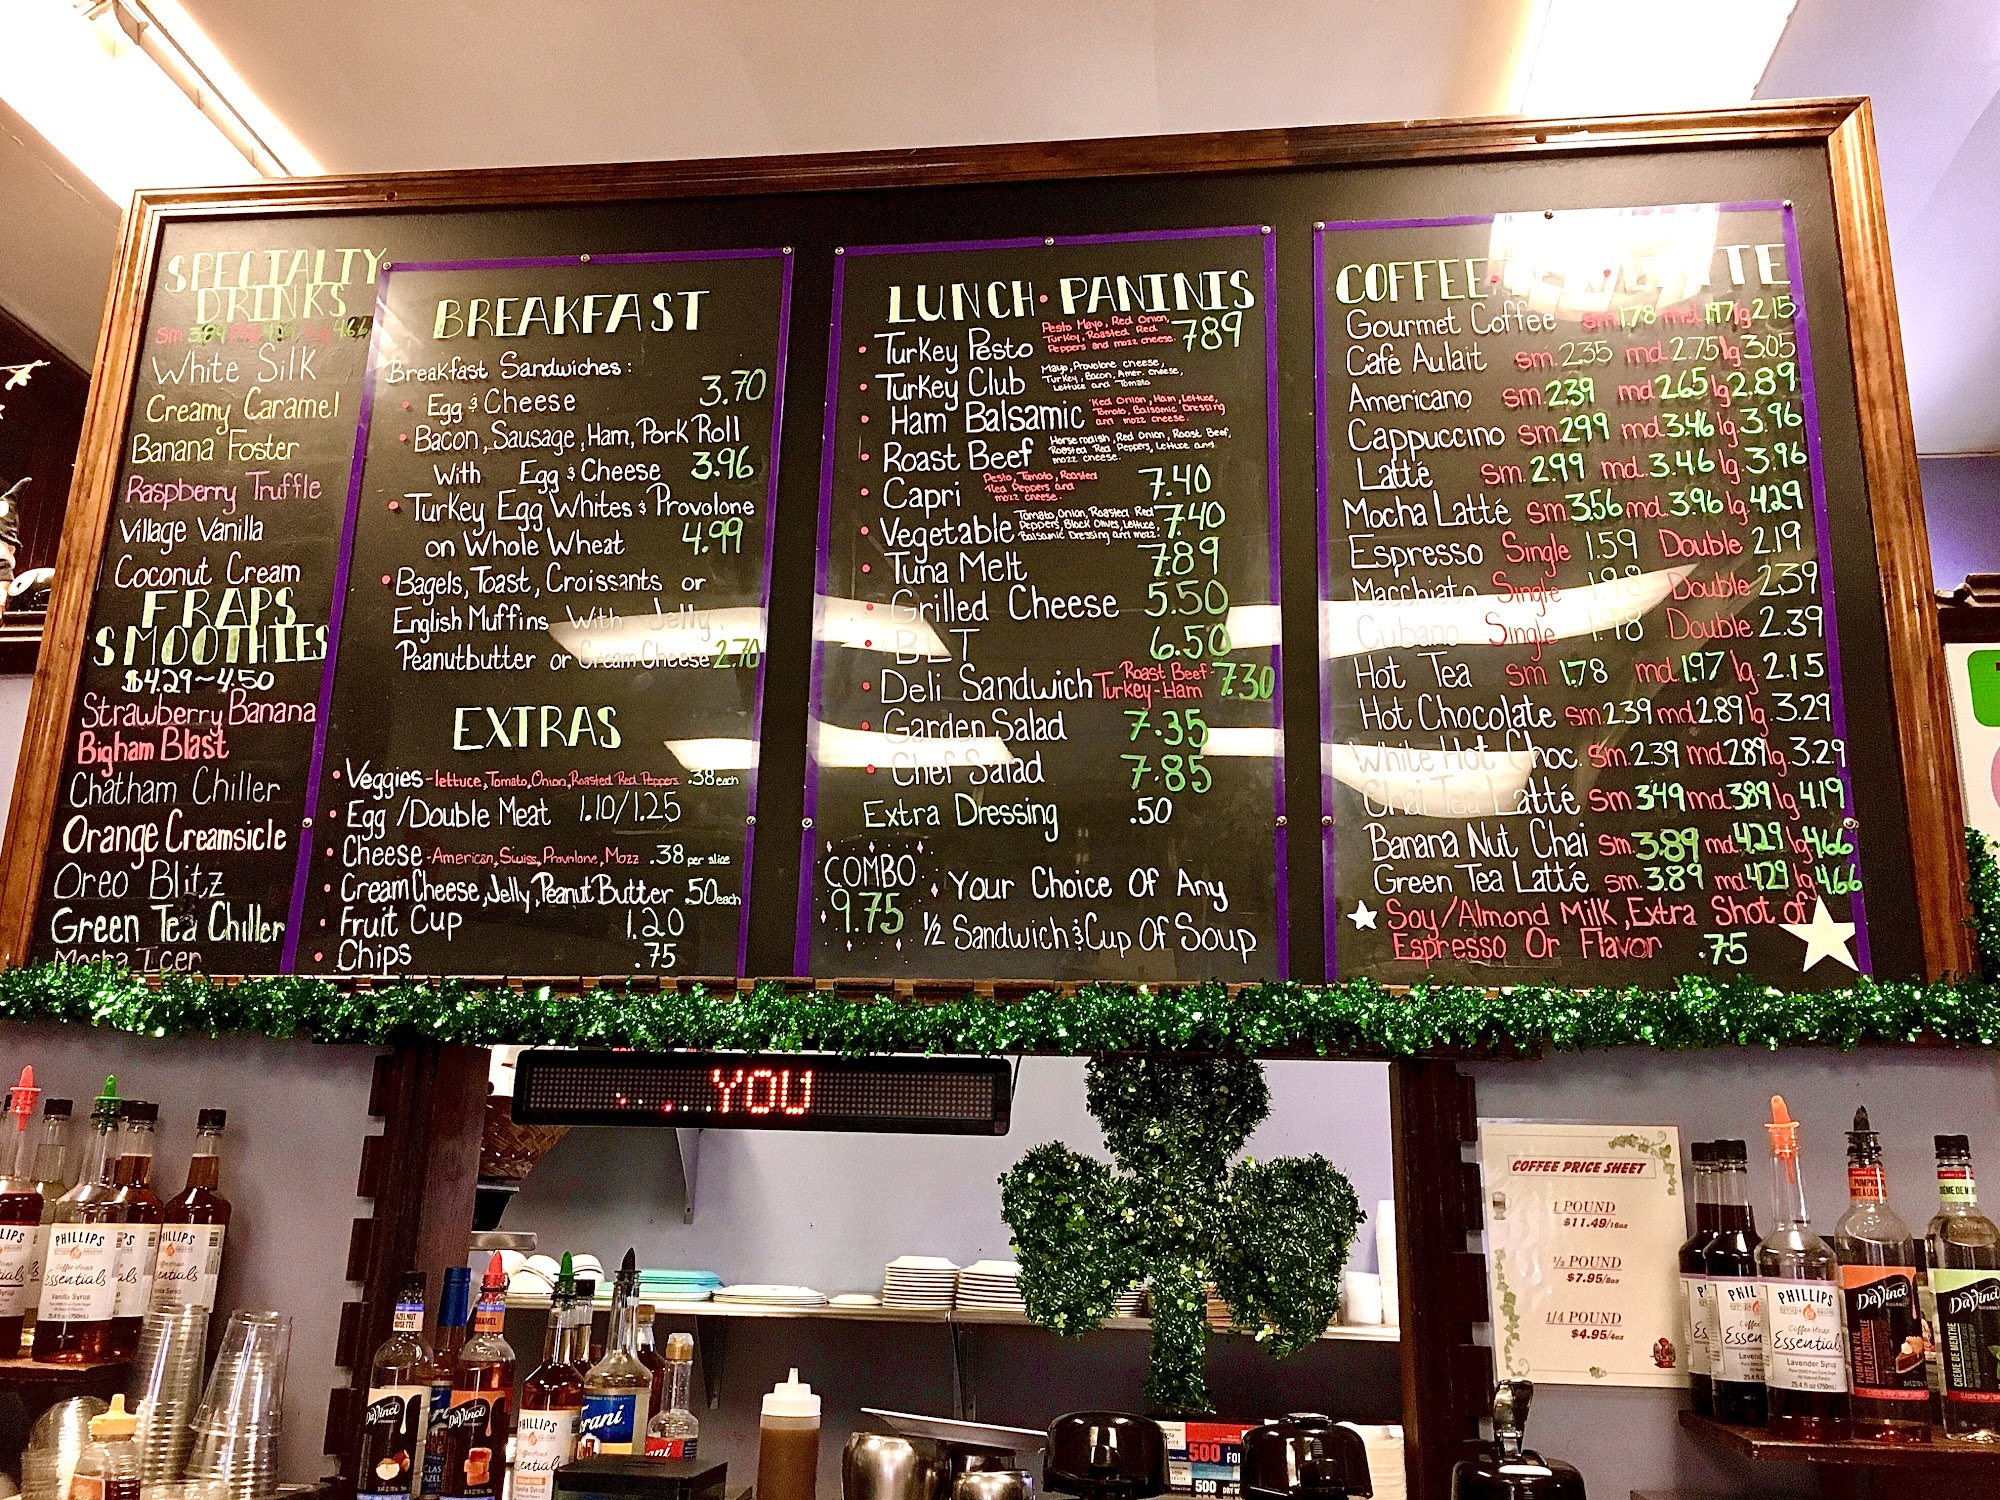 SPECIALTY
DRINKS
Sm 3.89 md 4.29 Lg 4.66
White Silk
Creamy Caramel
Banana Foster
Raspberry Truffle
Village Vanilla
Coconut Cream
FRAPS
SMOOTHIES
$4.29~4.50
Strawberry Banana
Bigham Blast
Chatham Chiller
Orange Creamsicle
Oreo Blitz
Green Tea Chiller
Mocha Icer
BREAKFAST
Breakfast Sandwiches:
• Egg & Cheese 3.70
• Bacon, Sausage, Ham, Pork Roll
With Egg & Cheese 3.96
• Turkey Egg Whites & Provolone
on Whole Wheat 4.99
• Bagels, Toast, Croissants or
English Muffins With Jelly,
Peanutbutter or Cream Cheese 2.70
EXTRAS
• Veggies - lettuce, Tomato, Onion, Roasted Red Peppers .38 each
• Egg / Double Meat 1.10/1.25
• Cheese - American, Swiss, Provolone, Mozz .38 per slice
• Cream Cheese, Jelly, Peanut Butter .50 each
• Fruit Cup 1.20
• Chips .75
LUNCH • PANINIS
• Turkey Pesto Pesto Mayo, Red Onion, Turkey, Roasted Red Peppers and mozz cheese. 7.89
• Turkey Club Mayo, Provolone cheese, Turkey, Bacon, Amer. cheese, Lettuce and Tomato
• Ham Balsamic Red Onion, Ham, Lettuce, Tomato, Balsamic Dressing and mozz cheese.
• Roast Beef Horseradish, Red Onion, Roast Beef, Roasted Red Peppers, Lettuce and mozz cheese.
• Capri Pesto, Tomato, Roasted Red Peppers and mozz cheese. 7.40
• Vegetable Tomato, Onion, Roasted Red Peppers, Black Olives, Lettuce, Balsamic Dressing and mozz. 7.40
• Tuna Melt 7.89
• Grilled Cheese 5.50
• BLT 6.50
• Deli Sandwich Roast Beef - Turkey - Ham 7.30
• Garden Salad 7.35
• Chef Salad 7.85
Extra Dressing .50
COMBO
9.75
• Your Choice Of Any
1/2 Sandwich & Cup Of Soup
COFFEE TE
Gourmet Coffee sm 1.78 md 1.97 lg 2.15
Café Aulait sm. 2.35 md. 2.75 lg 3.05
Americano sm. 2.39 md 2.65 lg 2.89
Cappuccino sm 2.99 md. 3.46 lg. 3.96
Latté sm. 2.99 md. 3.46 lg. 3.96
Mocha Latté sm 3.56 md. 3.96 lg. 4.29
Espresso Single 1.59 Double 2.19
Macchiato Single 1.98 Double 2.39
Cubano Single 1.98 Double 2.39
Hot Tea sm 1.78 md 1.97 lg. 2.15
Hot Chocolate sm 2.39 md 2.89 lg. 3.29
White Hot Choc. sm. 2.39 md 2.89 lg. 3.29
Chai Tea Latté sm 3.49 md 3.89 lg 4.19
Banana Nut Chai sm. 3.89 md 4.29 lg 4.66
Green Tea Latté sm. 3.89 md 4.29 lg 4.66
Soy/Almond Milk, Extra Shot of
Espresso Or Flavor .75
YOU
COFFEE PRICE SHEET
1 POUND
$11.49/16oz
1/2 POUND
$7.95/8oz
1/4 POUND
$4.95/4oz
PHILLIPS
Coffee House
Essentials
Vanilla Syrup
PHILLIPS
Essentials
DaVinci
DaVinci
CARAMEL
PHILLIPS
Torani
500
500
PHILLIPS
Coffee House
Essentials
Lavender Syrup
25.4 fl oz (750mL)
DaVinci
GOURMET
PUMPKIN PIE
DaVinci
CREME DE MENTHE